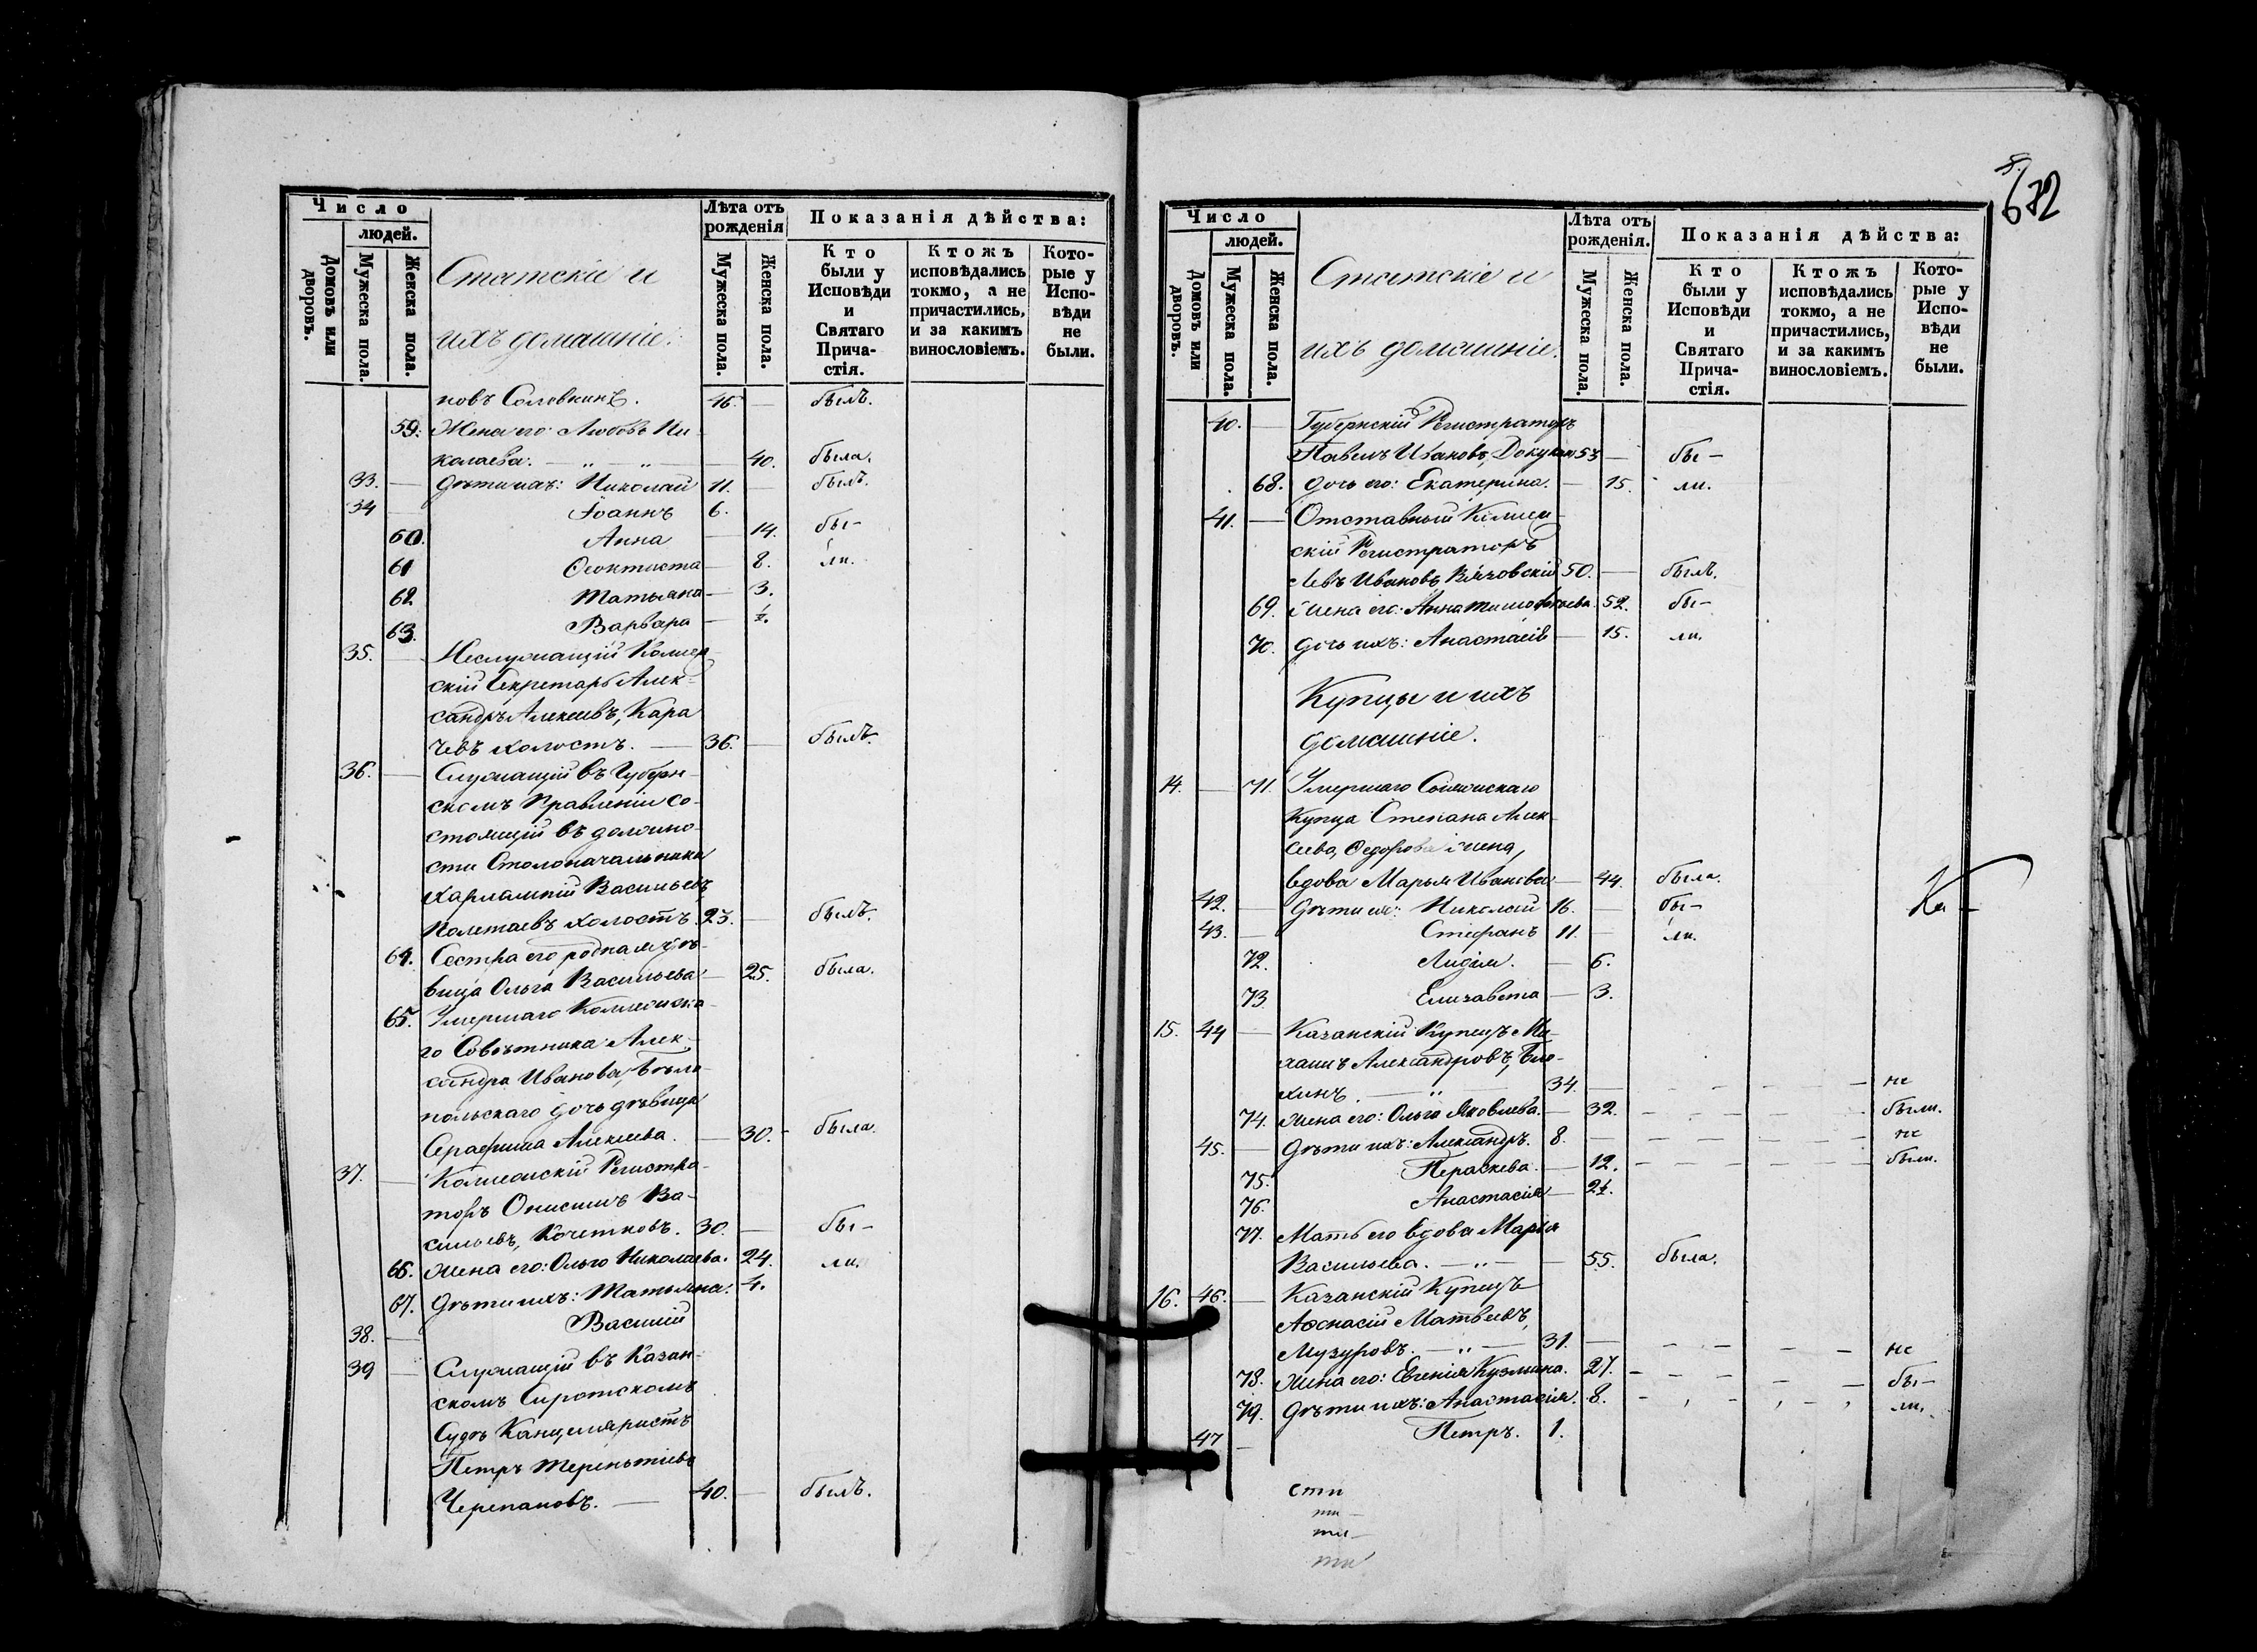 Число
людей.
Домовъ или дворовъ.
Мужеска пола.
Женска пола.
Статскіе и
ихъ домашніе.
Лѣта отъ рожденія
Мужеска пола.
Женска пола.
Показанія дѣйства:
Кто были у Исповѣди и Святаго Прича-стія.
Ктожъ исповѣдались токмо, а не причастились, и за какимъ винословіемъ.
Кото-рые у Испо-вѣди не были.
новъ Соловкинъ. 46. — былъ.
59. Жена его: Любовь Ни-
колаева. — „ — „ — 40. была.
33. — Дѣти ихъ: Николай 11. — былъ.
34 — Іоаннъ 6.
60. Анна — 14. бы-
61 Ѳеоктиста — 8. ли.
62 Татьяна — 3.
63. Варвара — ½.
35. — Неслужащій Колеж-
скій Секретарь Алек-
сандръ Алексѣевъ, Кара
чевъ холостъ. — 36. — былъ.
36. — Служащій въ Губерн-
скомъ Правленіи со-
стоящій въ должно-
сти Столоначальника
Харлампій Васильевъ,
Полетаевъ холостъ. 23. — былъ.
64. Сестра его родная дѣ-
вица Ольга Васильева — 25. была.
65. Умершаго Коллежска-
го Совѣтника Алек-
сандра Иванова, Бѣло-
польскаго дочь дѣвица
Серафима Алексѣева. — 30. - была.
37. — Коллежскій Регистра-
торъ Онисимъ Ва-
сильевъ, Кочетковъ. 30. — бы-
66. Жена его: Ольга Николаева. 24. ли.
67. Дѣти ихъ: Татьяна. 4.
38. — Василій
39 — Служащій въ Казан-
скомъ Сиротскомъ
Судѣ Канцеляристъ
Петръ Терентіевъ
Черепановъ. — 40. — былъ.
672
Число
людей.
Домовъ или дворовъ.
Мужеска пола.
Женска пола.
Статскіе и
ихъ домашніе.
Лѣта отъ рожденія.
Мужеска пола.
Женска пола.
Показанія дѣйства:
Кто были у Исповѣди и Святаго Прича-стія.
Ктожъ исповѣдались токмо, а не причастились, и за какимъ винословіемъ.
Кото-рые у Испо-вѣди не были.
40. — Губернскій Регистраторъ
Павелъ Ивановъ, 53 — бы-
68. дочь его: Екатерина. — 15. ли.
41. — Отставный Колеж-
скій Регистраторъ
Левъ Ивановъ Вязовскій 50. — былъ.
69. жена его: Анна Тимоѳѣева. 52. бы-
70. дочь ихъ: Анастасія — 15. ли.
Купцы и ихъ
домашніе.
14. — 71. Умершаго
Купца Степана Алек-
сѣева, Ѳедорова жена,
вдова Марья Иванова — 44. была.
42. — Дѣти ея: Николай 16. — бы-
43. — Стефанъ 11. — ли.
Ка-
72. Лидія. — 6.
73. Елизавета — 3.
15. 44 — Казанскій Купецъ Ми-
хаилъ Александровъ,
хинъ. — „ — 34. — не
74. жена его: Ольга Яковлева. — 32. были.
45. — Дѣти ихъ: Александръ. 8. — не
75. Параскева. — 12. были.
76. Анастасія — 2½.
77. Мать его вдова Марія
Васильева. — „ — 55. была.
16. 46. — Казанскій Купецъ
Аѳонасій Матвѣевъ,
Музуровъ. — „ — 31. — не
78. жена его: Евгенія Кузмина. 27. бы-
79. Дѣти ихъ: Анастасія. 8. ли.
47 — Петръ. 1.
сти
ти
ти
ти